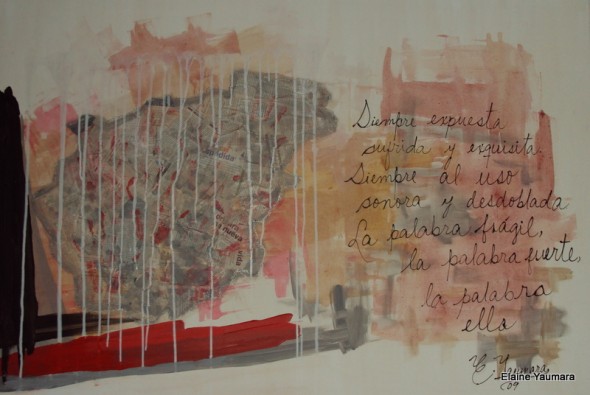 Siempre expuesta
sufrida y exquisita.
Siempre al uso
sonora y desdoblada
La palabra frágil,
la palabra fuerte,
la palabra
ella
E. Yaumara
09
Elaine Yaumara
nueva
vida